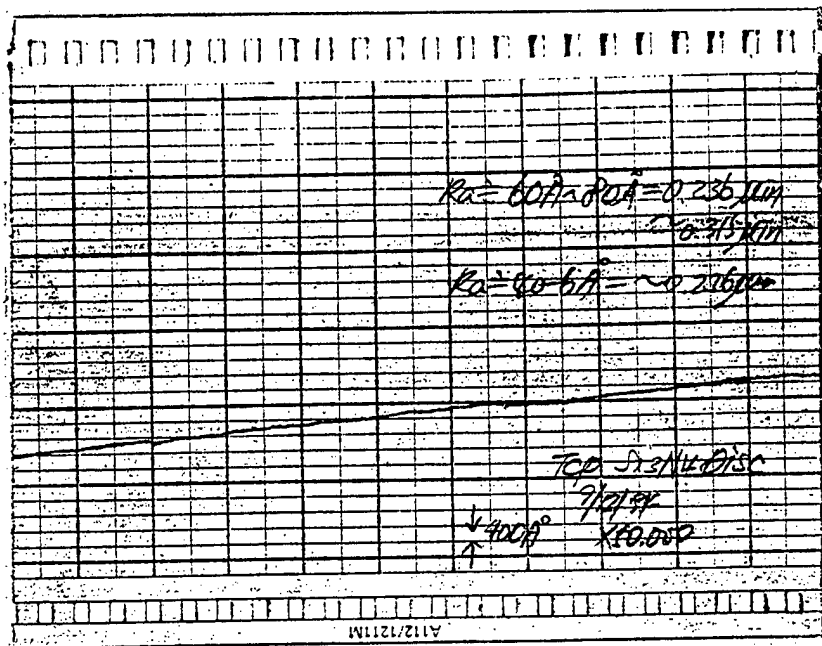 Ra ≐ 60Å ~ 80Å = 0.236 μin
~ 0.315 μin
Ra ≐ = ~ 0.236 μin
Top Si3N4 Disc
400Å X50.000
A112/1211M